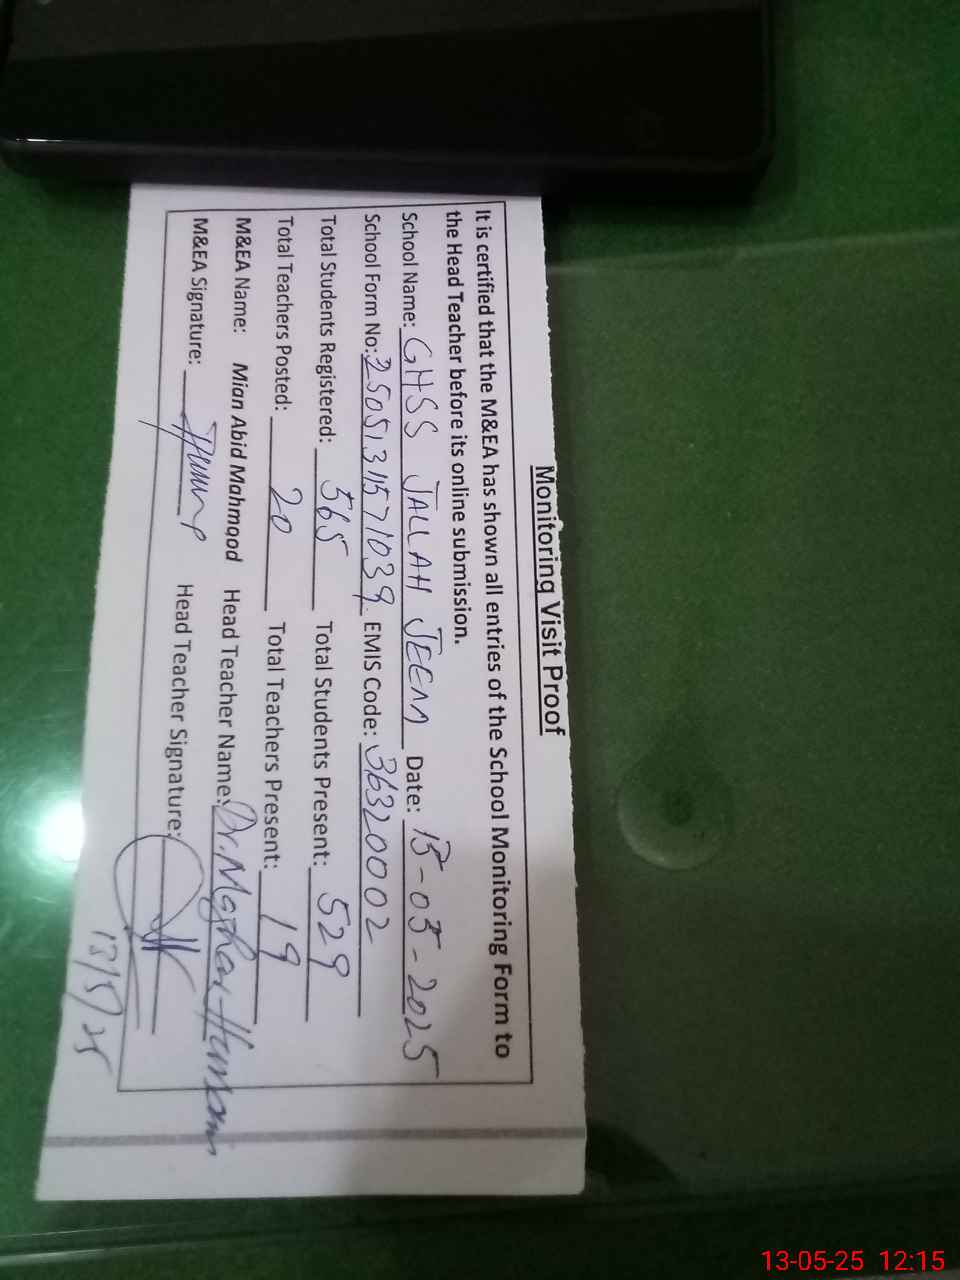 Monitoring Visit Proof
It is certified that the M&EA has shown all entries of the School Monitoring Form to
the Head Teacher before its online submission.
School Name: GHSS JALLAH JEEM Date: 13-05-2025
School Form No: 2505131571039 EMIS Code: 36320002
Total Students Registered: 565 Total Students Present: 529
Total Teachers Posted: 20 Total Teachers Present: 19
M&EA Name: Mian Abid Mahmood Head Teacher Name: Dr. Mazhar Hussain
M&EA Signature: Head Teacher Signature:
13/5/25
13-05-25 12:15